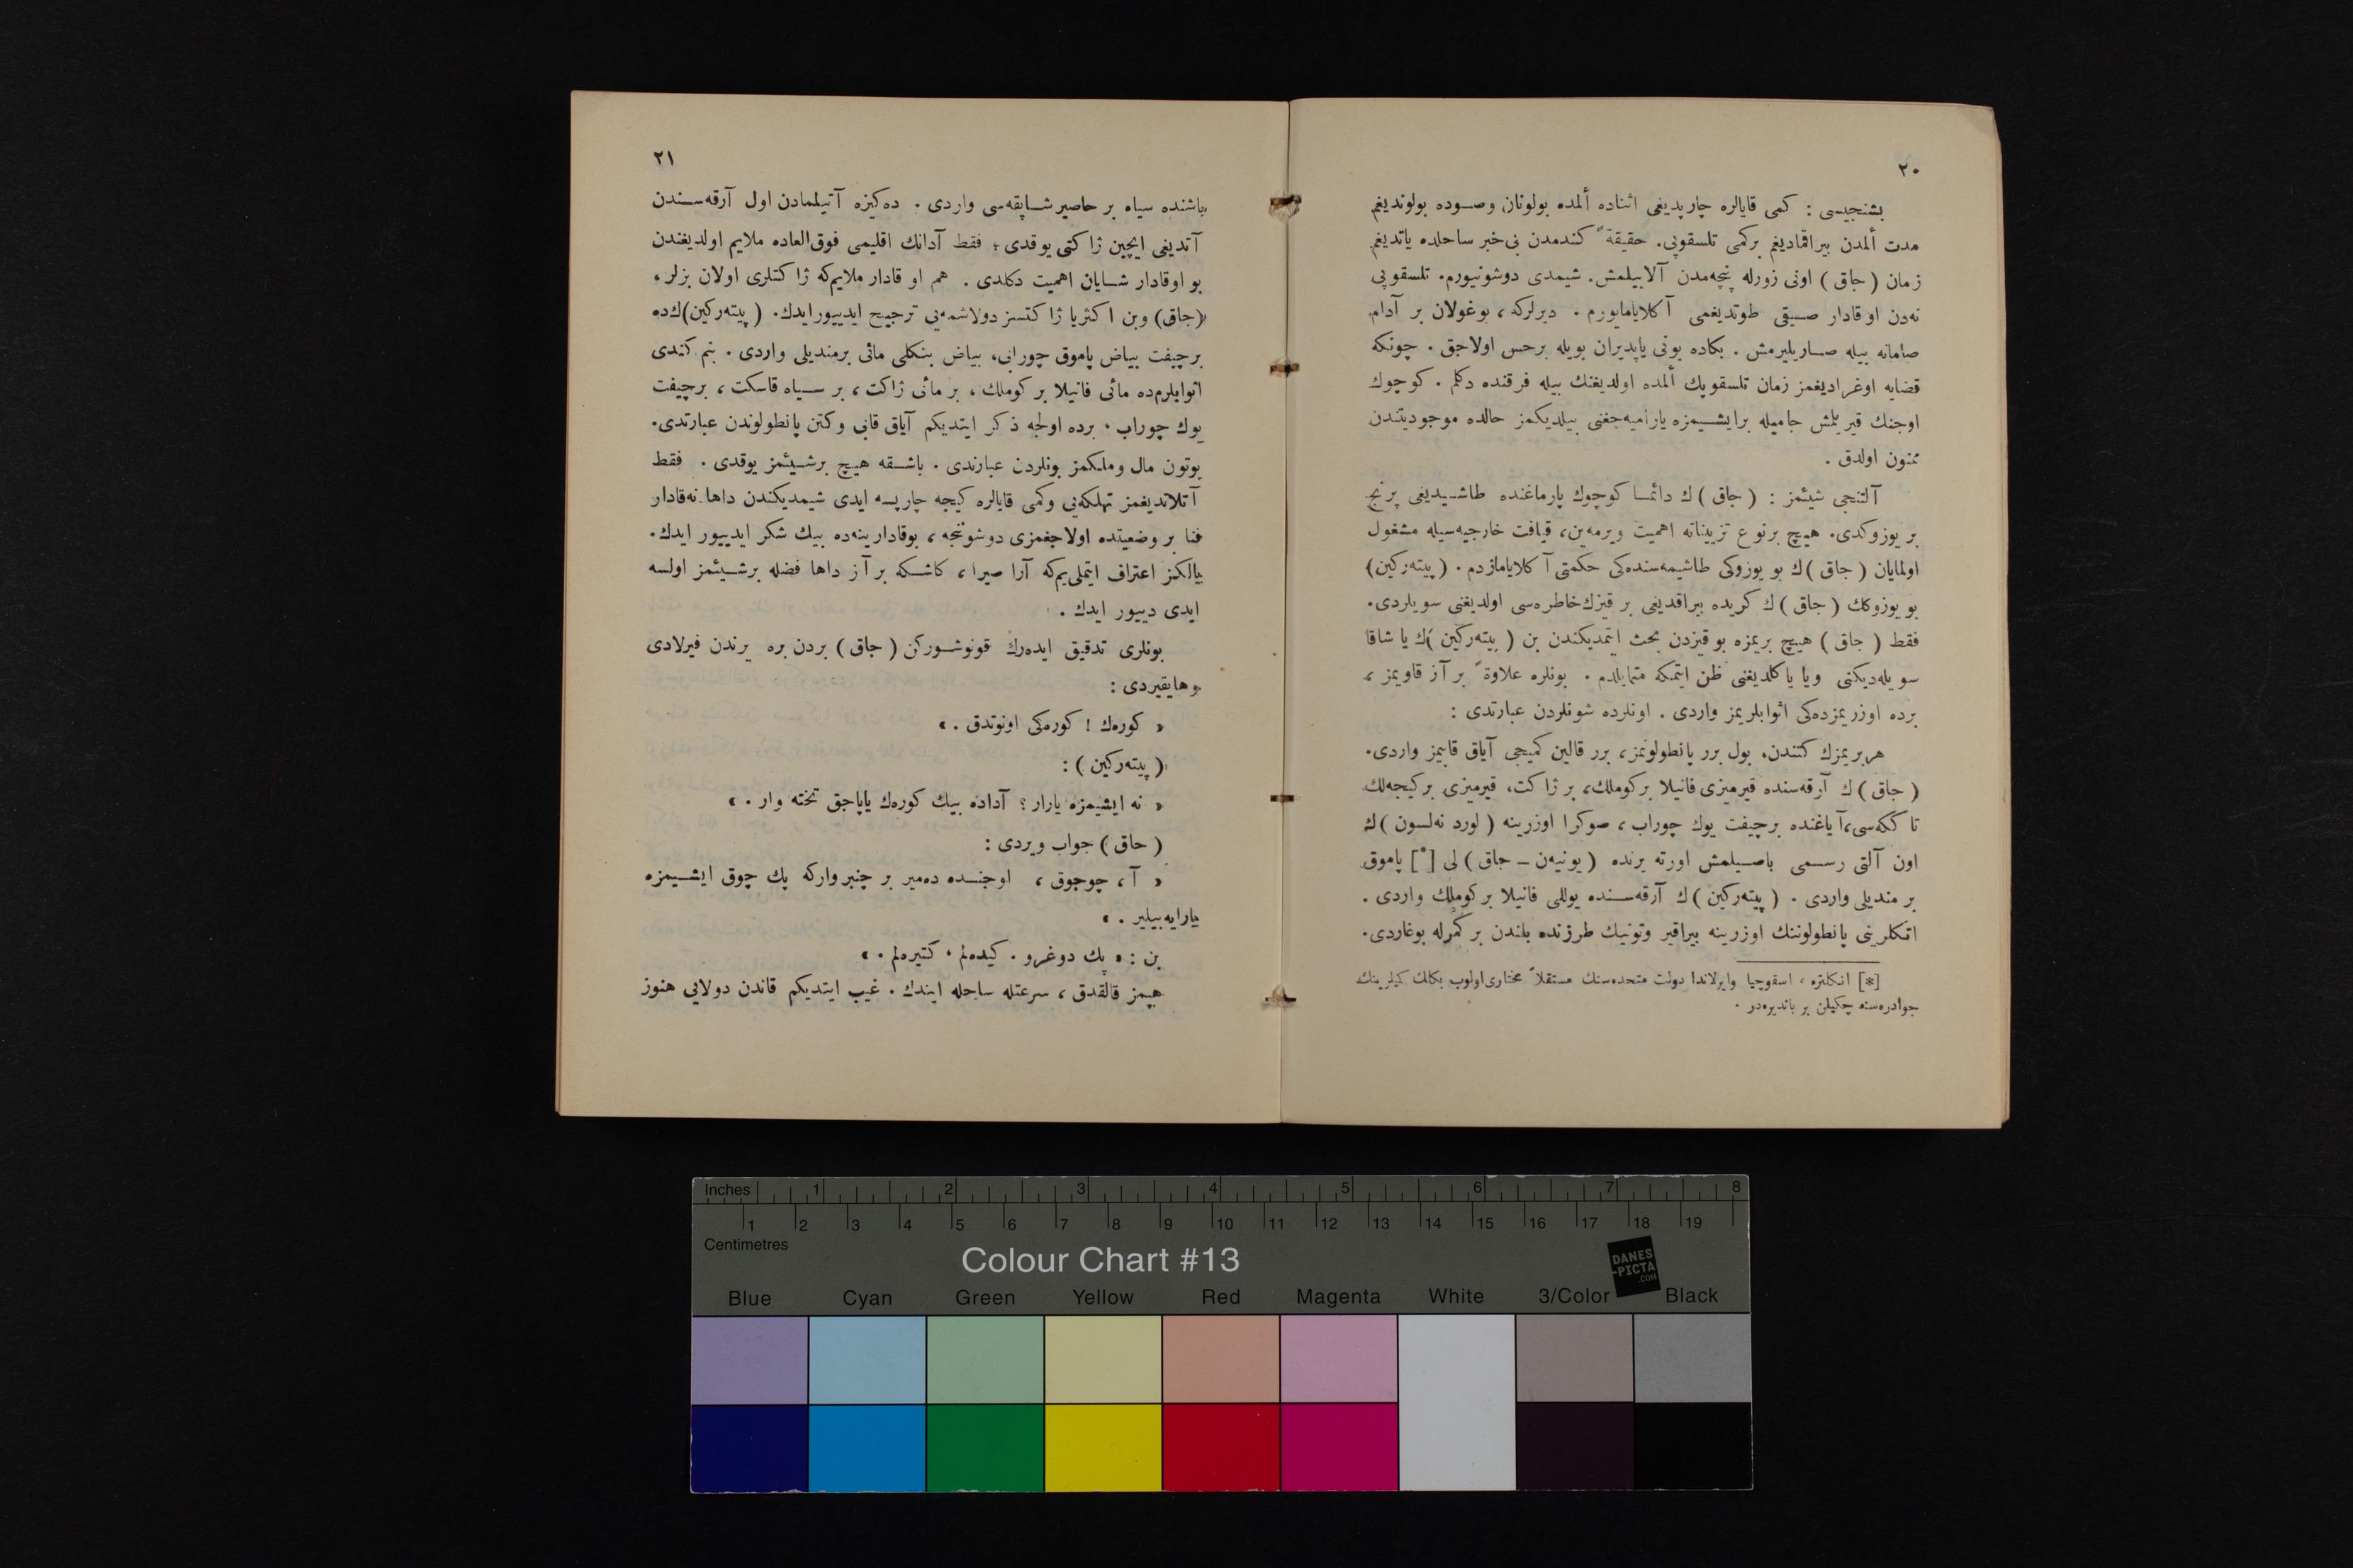 ٢٠
بشنجیسی : کمی قایالره چارپدیغی اثناده ألمده بولونان وصوده بولوندیغم
مدت ألمدن بیراقمادیغم برکمی تلسقوپی. حقیقةً کندمدن بی‌خبر ساحلده یاتدیغم
زمان ( جاق ) اونی زورله پنچه‌مدن آلابیلمش. شیمدی دوشونیورم. تلسقوپی
نه‌دن اوقادار صیقی طوتدیغمی آکلایامایورم . دیرلرکه ، بوغولان بر آدام
صامانه بیله صاریلیرمش . بکاده بونی یاپدیران بویله برحس اولاجق . چونکه
قضایه اوغرادیغمز زمان تلسقوپك ألمده اولدیغنك بیله فرقنده دکلم . کوچوك
اوجنك قیریلمش جامیله برایشیمزه یارامیه‌جغنی بیلدیکمز حالده موجودیتندن
ممنون اولدق .
آلتنجی شیئمز : ( جاق )ك دائما کوچوك پارماغنده طاشیدیغی پرنج
بر یوزوکدی. هیچ برنوع تزییناته اهمیت ویرمه‌ین، قیافت خارجیه‌سیله مشغول
اولمایان ( جاق )ك بو یوزوکی طاشیمه‌سنده‌کی حکمتی آکلایامازدم . ( پیته‌رکین)
بو یوزوکك ( جاق )ك کریده بیراقدیغی بر قیزك خاطره‌سی اولدیغنی سویلردی.
فقط ( جاق ) هیچ بریمزه بو قیزدن بحث ایتمدیکندن بن ( پیته‌رکین )ك یا شاقا
سویله‌دیکنی ویا یاکلدیغنی ظن ایتمکه متمایلدم . بونلره علاوةً بر آز قاویمز ،
برده اوزریمزده‌کی اثوابلریمز واردی . اونلرده شونلردن عبارتدی :
هربریمزك کتندن. بول برر پانطولونمز، برر قالین کمیجی آیاق قابیمز واردی.
( جاق )ك آرقه‌سنده قیرمیزی فانیلا برکوملك، بر ژاکت، قیرمیزی برکیجه‌لك
تاککه‌سی،آیاغنده برچیفت یوك چوراب ، صوکرا اوزرینه ( لورد نه‌لسون )ك
اون آلتی رسمی باصیلمش اورته یرنده ( یونیه‌ن ـ جاق ) لی [*] پاموق
بر مندیلی واردی . ( پیته‌رکین )ك آرقه‌سنده یوللی فانیلا برکوملك واردی .
اتکلرینی پانطولوننك اوزرینه بیراقیر وتونیك طرزنده بلندن برکمرله بوغاردی.
[*] انکلتره ، اسقوچیا وایرلاندا دولت متحده‌سنك مستقلاً مختاری اولوب بکالك کیلرینك
جوادره‌سنه چکیلن بر باندیره‌در .
٢١
باشنده سیاه بر حاصیر شاپقه‌سی واردی . ده‌کیزه آتیلمادن اول آرقه‌سندن
آتدیغی ایچین ژاکتی یوقدی ؛ فقط آدانك اقلیمی فوق‌العاده ملایم اولدیغندن
بو اوقادار شایان اهمیت دکلدی . هم او قادار ملایم‌که ژاکتلری اولان بزلر،
(جاق) وبن اکثریا ژاکتسز دولاشمه‌یی ترجیح ایدییورایدك. ( پیته‌رکین)ك‌ده
برچیفت بیاض پاموق چورابی، بیاض بنکلی مائی برمندیلی واردی . بنم کندی
اثوابلرم‌ده مائی فانیلا بر کوملك ، بر مائی ژاکت ، بر سیاه قاسکت ، برچیفت
یوك چوراب ، برده اولجه ذکر ایتدیکم آیاق قابی وکتن پانطولوندن عبارتدی.
بوتون مال وملکمز بونلردن عبارتدی . باشقه هیچ برشیئمز یوقدی . فقط
آتلاتدیغمز تهلکه‌یی وکمی قایالره کیجه چارپسه ایدی شیمدیکندن داها نه‌قادار
فنا بر وضعیتده اولاجغمزی دوشونجه ، بوقادارینه‌ده بیك شکر ایدییور ایدك.
یالکز اعتراف ایتملی‌یم‌که آرا صیرا ، کاشکه بر آز داها فضله برشیئمز اولسه
ایدی دییور ایدك .
بونلری تدقیق ایده‌رك قونوشورکن ( جاق ) بردن بره یرندن فیرلادی
وهایقیردی :
« کوره‌ك ! کوره‌کی اونوتدق . »
( پیته‌رکین ) :
« نه ایشیمزه یارار ؟ آداده بیك کوره‌ك یاپاجق تخته وار . »
( جاق ) جواب ویردی :
« آ ، چوجوق ، اوجنده ده‌میر بر چنبر وارکه پك چوق ایشیمزه
یارایه‌بیلیر . »
بن : « پك دوغرو . کیده‌لم ، کتیره‌لم . »
هپمز قالقدق ، سرعتله ساحله ایندك . غیب ایتدیکم قاندن دولایی هنوز
Inches 1 2 3 4 5 6 7 8
1 2 3 4 5 6 7 8 9 10 11 12 13 14 15 16 17 18 19
Centimetres
Colour Chart #13
DANES
-PICTA
.COM
Blue Cyan Green Yellow Red Magenta White 3/Color Black